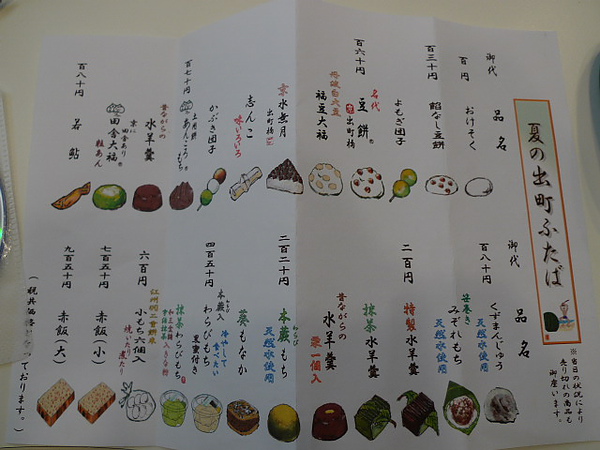 夏の出町ふたば
※当日の状況により
売り切れの商品も
御座います。
御代
品名
百円
おけそく
百三十円
餡なし豆餅
よもぎ団子
百六十円
名代
豆餅
出町橋
丹波白大豆
福豆大福
京水無月
出町橋
志んこ
味いろいろ
かぶき団子
百七十円
土用餅
あんころもち
昔ながらの
水羊羹
京に
田舎あり
田舎大福
粒あん
百八十円
若鮎
御代
品名
百八十円
くずまんじゅう
天然水使用
笹巻き
みぞれもち
天然水使用
二百円
特製水羊羹
抹茶水羊羹
昔ながらの
水羊羹
栗一個入
二百二十円
本蕨もち
わらび
天然水使用
葵もなか
冷やして
食べたい
四百五十円
本蕨入
わらびもち
黒蜜付き
抹茶わらびもち
六百円
小もち六個入
焼いたり
煮たり
七百五十円
赤飯(小)
九百五十円
赤飯(大)